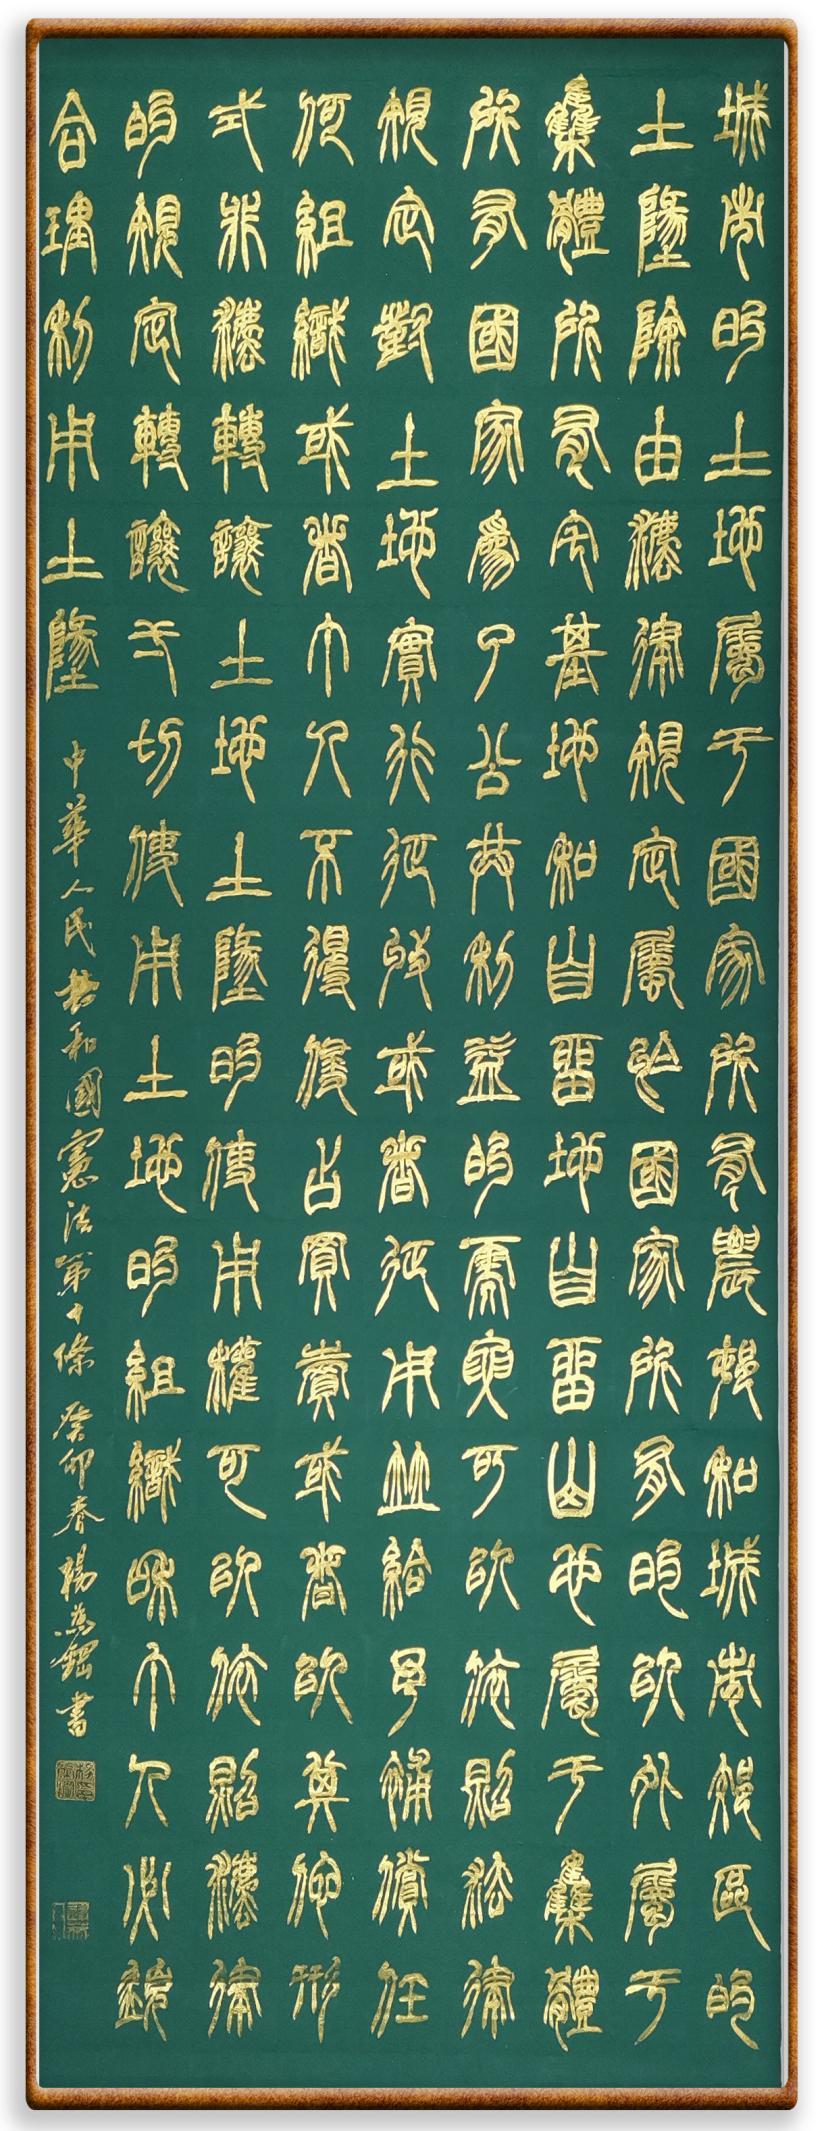 城市的土地屬于國家所有農村和城市郊區的
土墬除由灋律規定屬於國家所有的以外屬于
雧體所有宅基地和自留地自留山也屬于雧體
所有國家爲了公共利益的需要可以依照法律
規定對土地實行征收或者征用並給予補償任
何組織或者个人不得侵占買賣或者以其他形
式非灋轉讓土地土墬的使用權可以依照灋律
的規定轉讓弌切使用土地的組織和个人必須
合理利用土墬
中華人民共和國憲法第十條 癸卯春楊書